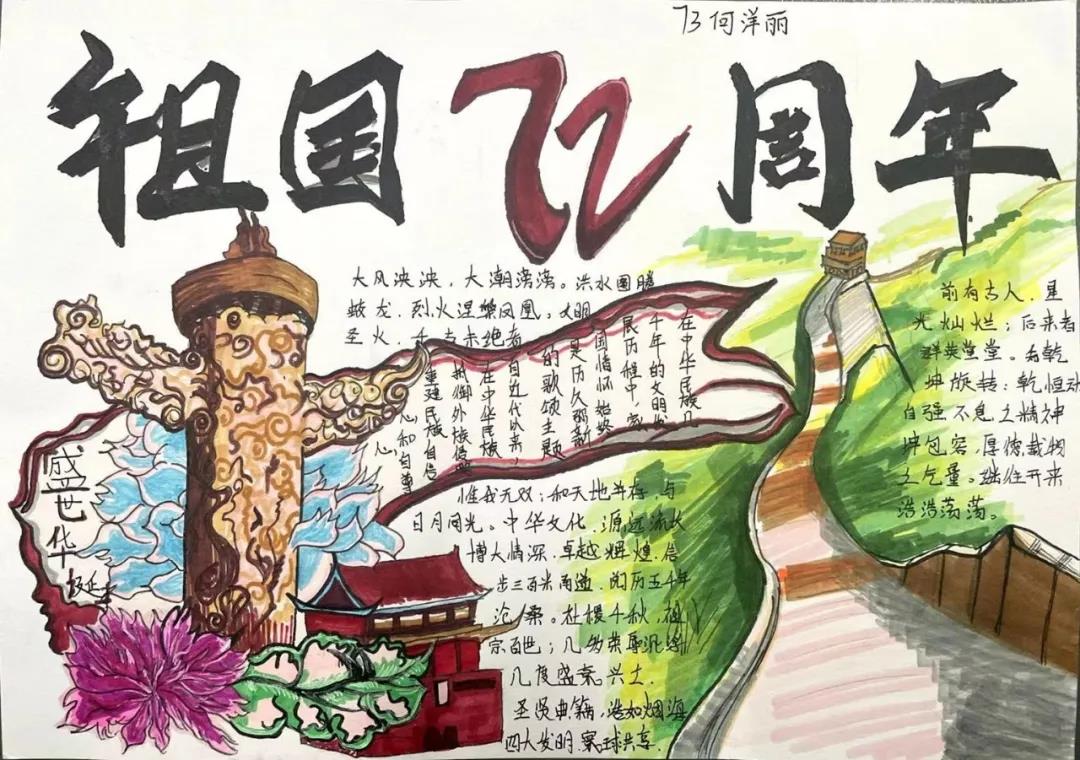 73何洋丽
祖国72周年
大风泱泱，大潮滂滂。洪水图腾
蛟龙，烈火涅槃凤凰，文明
圣火，千古未绝者
在中华民族几
千年的文明发
民历程中，家
国情怀始终
是历久弥新
的歌颂主题
自近代以来，
在中华民族
抵御外族侵略
重建民族自信
心和自尊
心
惟我无双；和天地并存，与
日月同光。中华文化，源远流长
博大情深，卓越辉煌，信
步三百米甬道，阅历五千年
沧桑。社稷千秋，祖
宗百世；几多荣辱沉浮
几度盛衰兴亡
圣贤典籍，浩如烟海
四大发明，寰球共享
前有古人，星
光灿烂；后来者
群英堂堂。看乾
坤旋转：乾恒动
自强不息之精神
坤包容，厚德载物
之气量。继往开来
浩浩荡荡。
盛世华